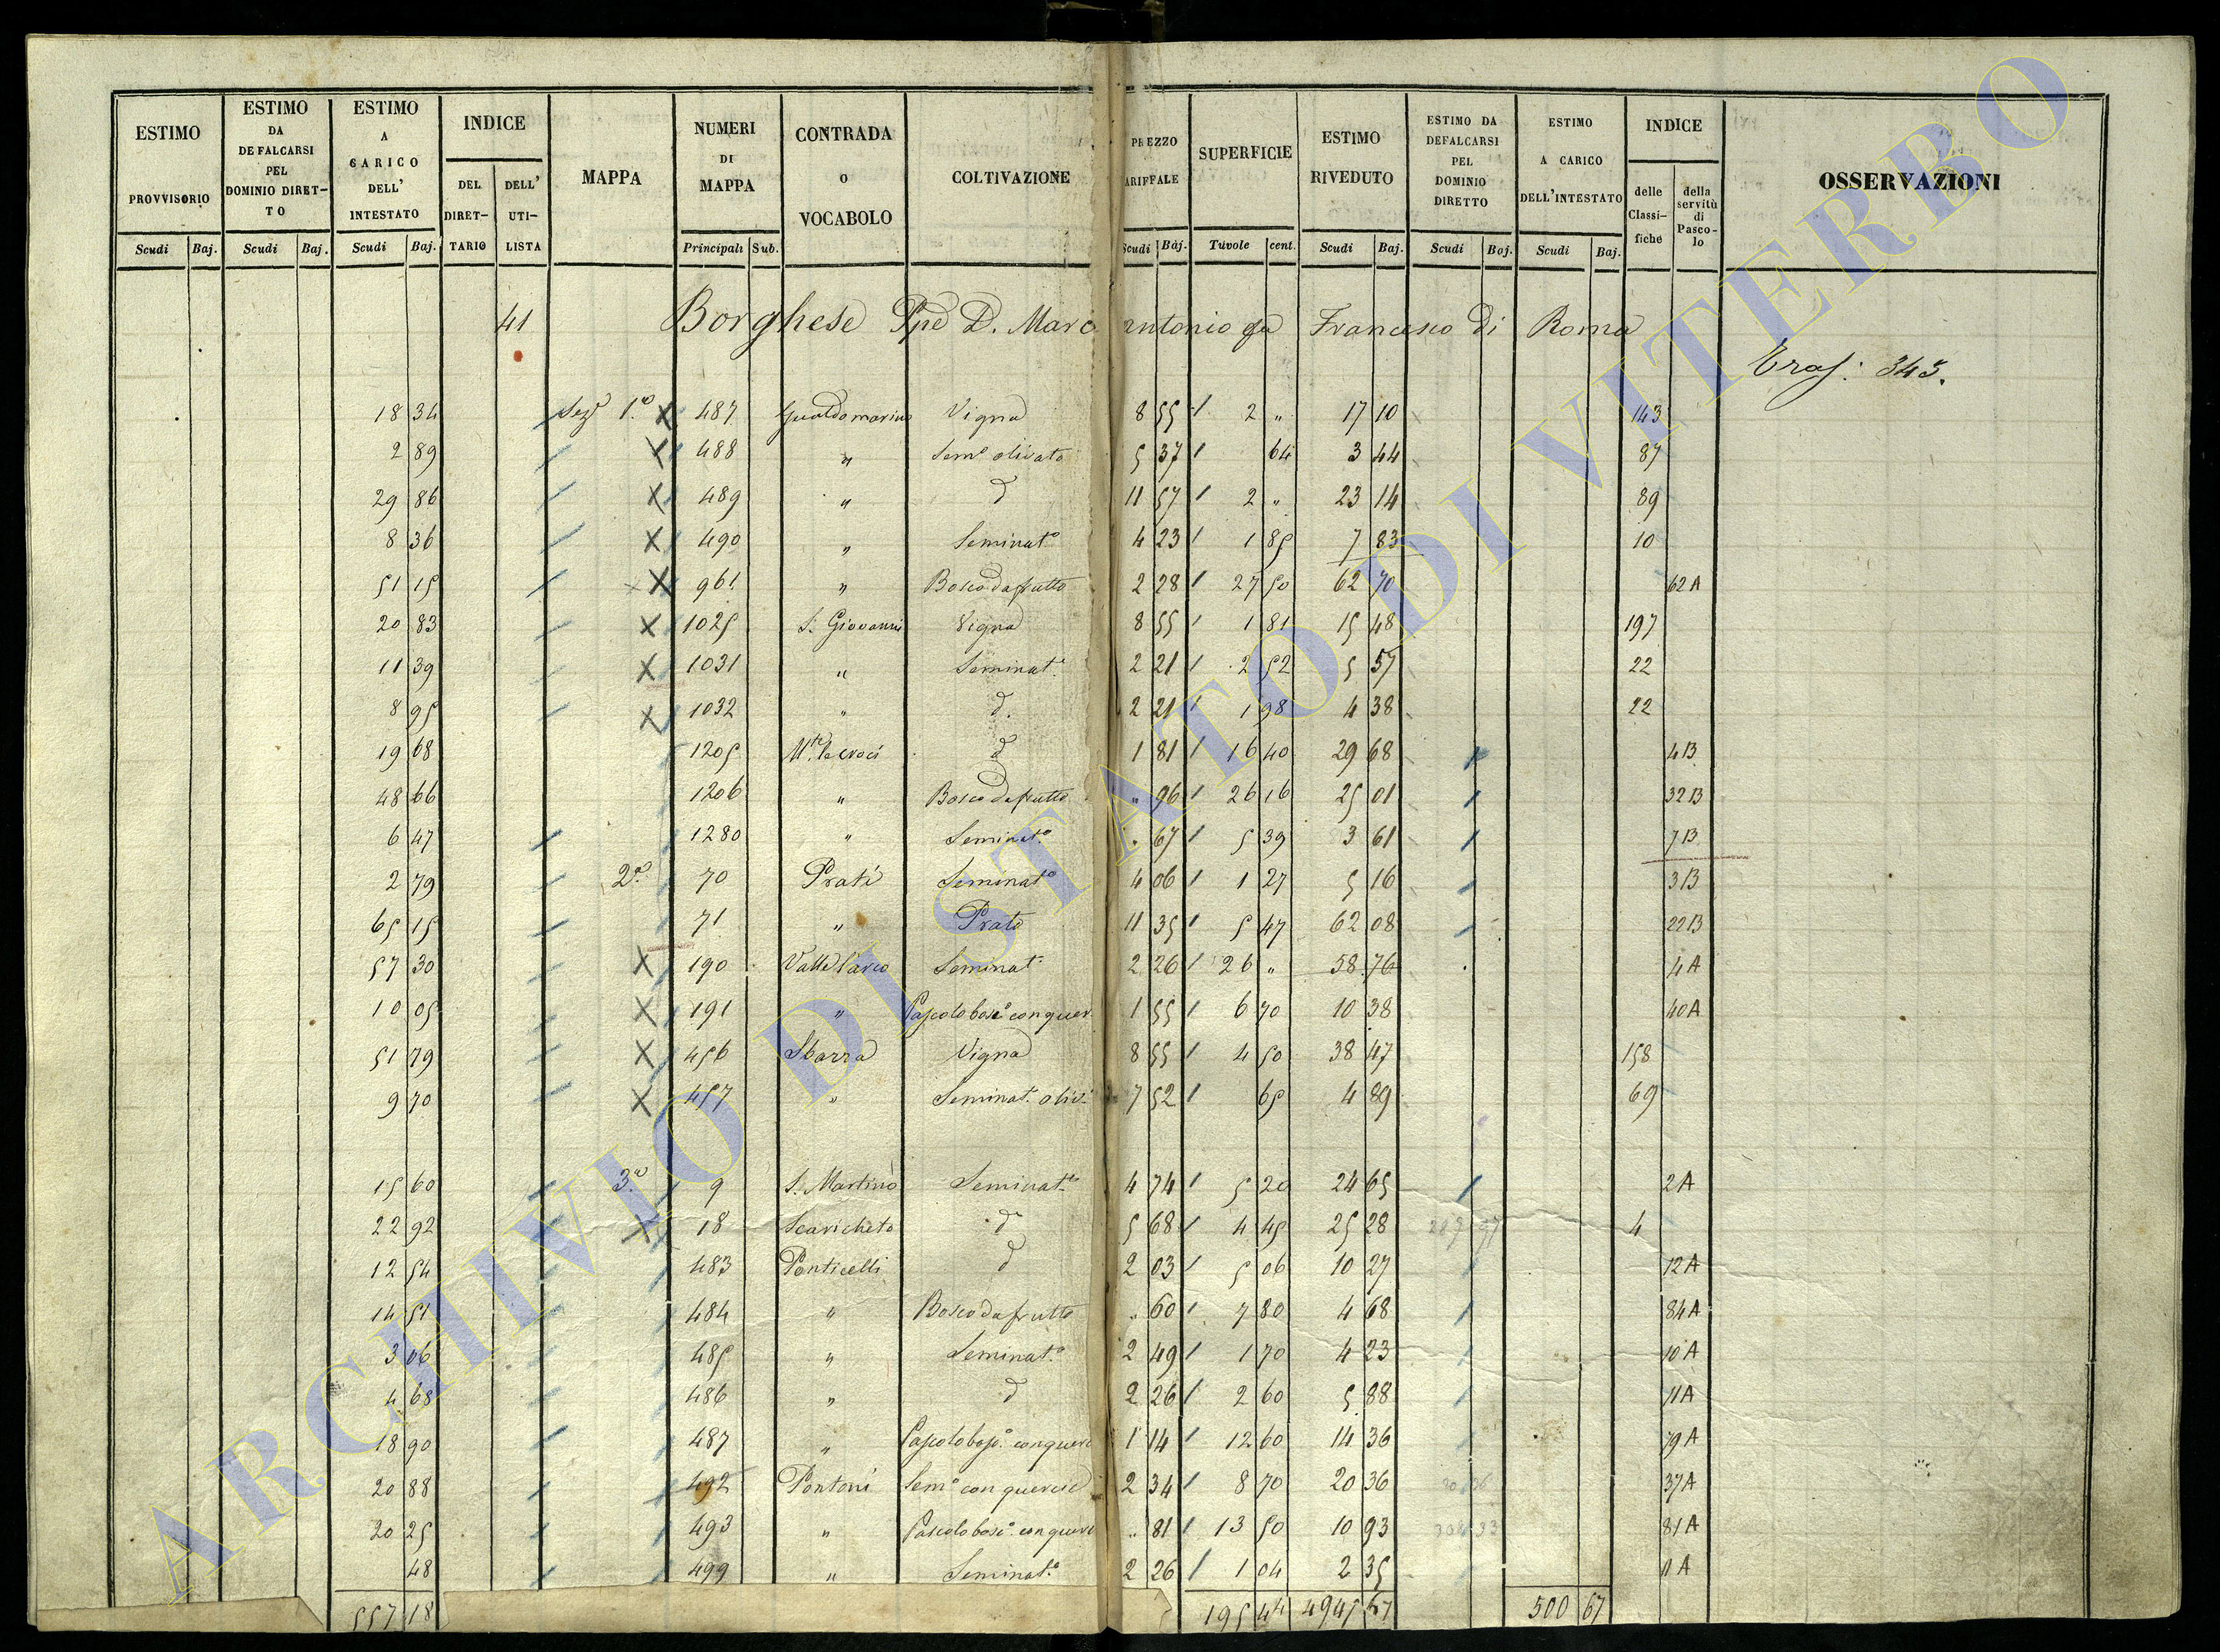 ESTIMO PROVVISORIO Scudi Baj. | ESTIMO DA DEFALCARSI PEL DOMINIO DIRETTO Scudi Baj. | ESTIMO A CARICO DELL' INTESTATO Scudi Baj. | INDICE DEL DIRETTARIO DELL' UTILISTA | MAPPA | NUMERI DI MAPPA Principali Sub. | CONTRADA O VOCABOLO | COLTIVAZIONE | PREZZO ARIFFALE Scudi Baj. | SUPERFICIE Tavole cent. | ESTIMO RIVEDUTO Scudi Baj. | ESTIMO DA DEFALCARSI PEL DOMINIO DIRETTO Scudi Baj. | ESTIMO A CARICO DELL'INTESTATO Scudi Baj. | INDICE delle Classifiche della servitù di Pascolo | OSSERVAZIONI
41 Borghese Ppe D. Marcantonio fu Francesco di Roma
Traf: 343.
18 34 Sez.e 1.a X 487 Gualdomarino Vigna 8 55 2 „ 17 10 143
2 89 X 488 „ Sem.o olivato 5 37 64 3 44 87
29 86 X 489 „ d 11 57 2 „ 23 14 89
8 36 X 490 „ Seminat.o 4 23 1 85 7 83 10
51 15 X 961 „ Bosco da frutto 2 28 27 50 62 70 62 A
20 83 X 1025 S. Giovanni Vigna 8 55 1 81 15 48 197
11 39 X 1031 „ Seminat.o 2 21 2 52 5 57 22
8 95 X 1032 „ d. 2 21 1 98 4 38 22
19 68 1205 M.te la croci d 1 81 16 40 29 68 4 B
48 66 1206 „ Bosco da frutto „ 96 26 16 25 01 32 B
6 47 1280 „ Seminat.o „ 67 5 39 3 61 7 B
2 79 2.a 70 Prati Seminat.o 4 06 1 27 5 16 3 B
65 15 71 „ Prato 11 35 5 47 62 08 22 B
57 30 X 190 Valle l'arco Seminat. 2 26 26 „ 58 76 4 A
10 05 X 191 „ Pascolo bosc.o con querc. 1 55 6 70 10 38 40 A
51 79 X 456 Sbarra Vigna 8 55 4 50 38 47 158
9 70 X 457 „ Seminat. oliv. 7 52 65 4 89 69
15 60 3.a 9 S. Martino Seminat.o 4 74 5 20 24 65 2 A
22 92 X 18 Scaricheto d 5 68 4 45 25 28 4
12 54 483 Ponticelli d 2 03 5 06 10 27 12 A
14 51 484 „ Bosco da frutto „ 60 7 80 4 68 84 A
3 06 485 „ Seminat.o 2 49 1 70 4 23 10 A
4 68 486 „ d 2 26 2 60 5 88 11 A
18 90 487 „ Pascolo bosc.o con querc 1 14 12 60 14 36 79 A
20 88 492 Pontoni Sem.o con quercie 2 34 8 70 20 36 37 A
20 25 493 „ Pascolo bosc.o con querc „ 81 13 50 10 93 81 A
48 499 „ Seminat.o 2 26 1 04 2 35 11 A
557 18 195 44 494 67 500 67
ARCHIVIO DI STATO DI VITERBO